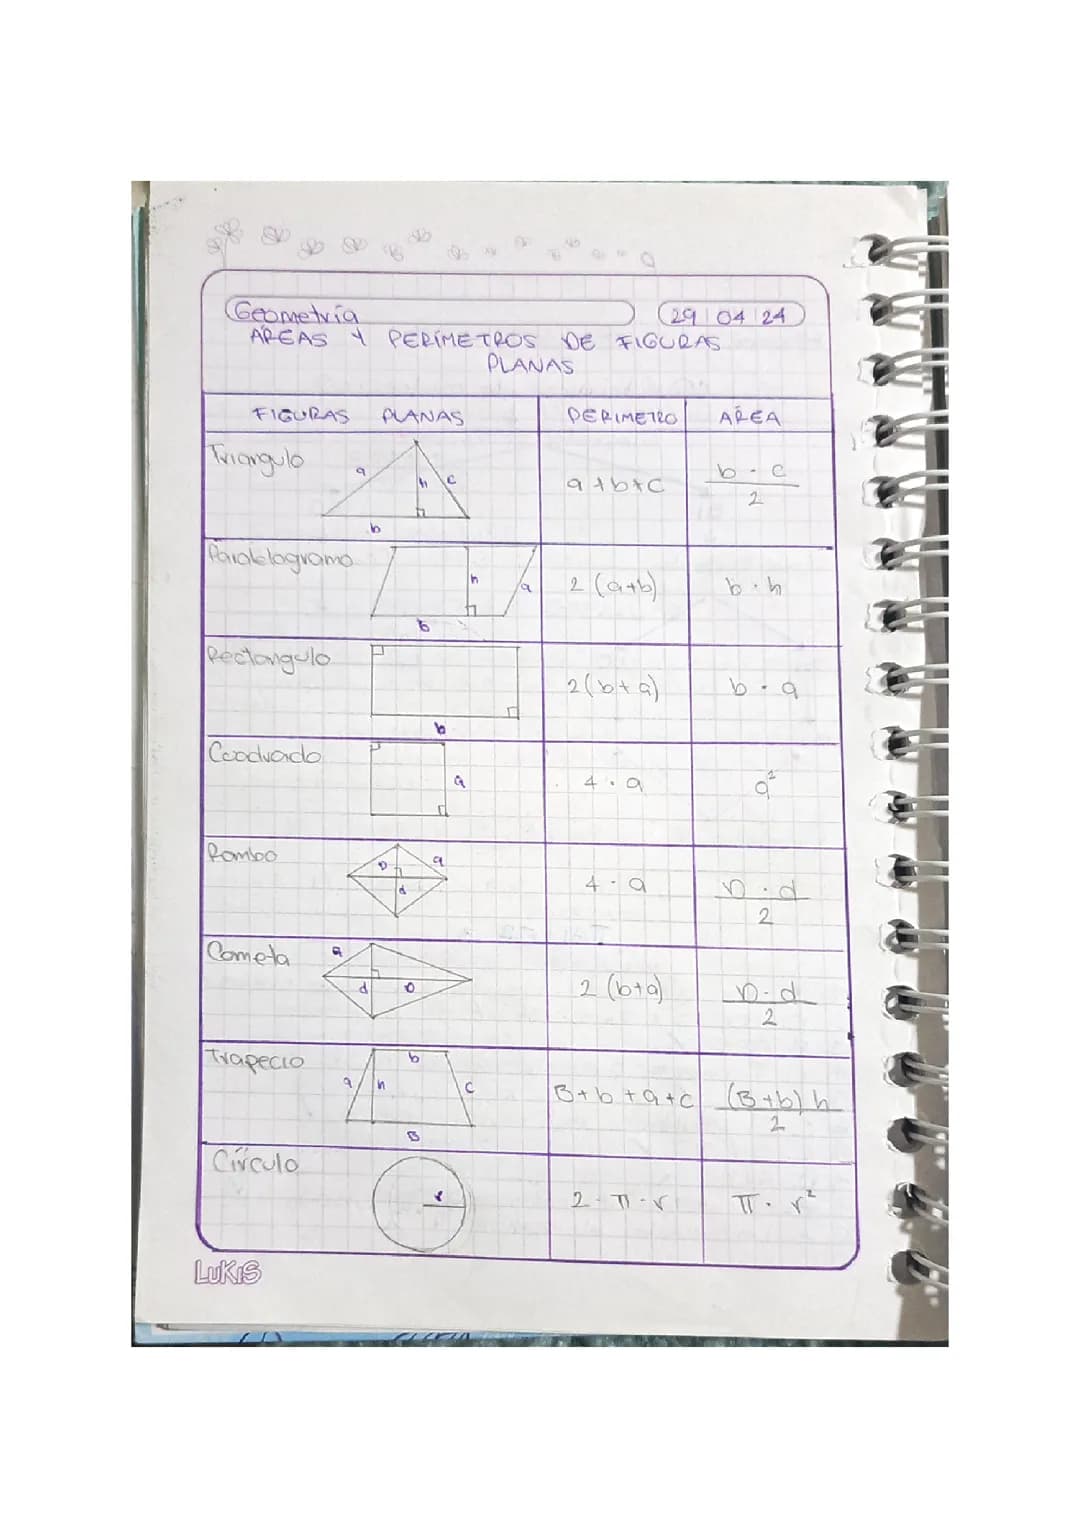 Geometría
29 04 24
ÁREAS Y PERÍMETROS DE FIGURAS
PLANAS
FIGURAS PLANAS PERIMETRO ÁREA
Triangulo a h c b a+b+c b · c / 2
Paralelogramo h a b 2 (a+b) b · h
Rectangulo b 2(b+a) b · a
Cuadrado a 4 · a a²
Rombo D a d 4 · a D · d / 2
Cometa a d D 2 (b+a) D · d / 2
Trapecio b a h c B B+b+a+c (B+b) h / 2
Círculo r 2 · π · r π · r²
LUKIS